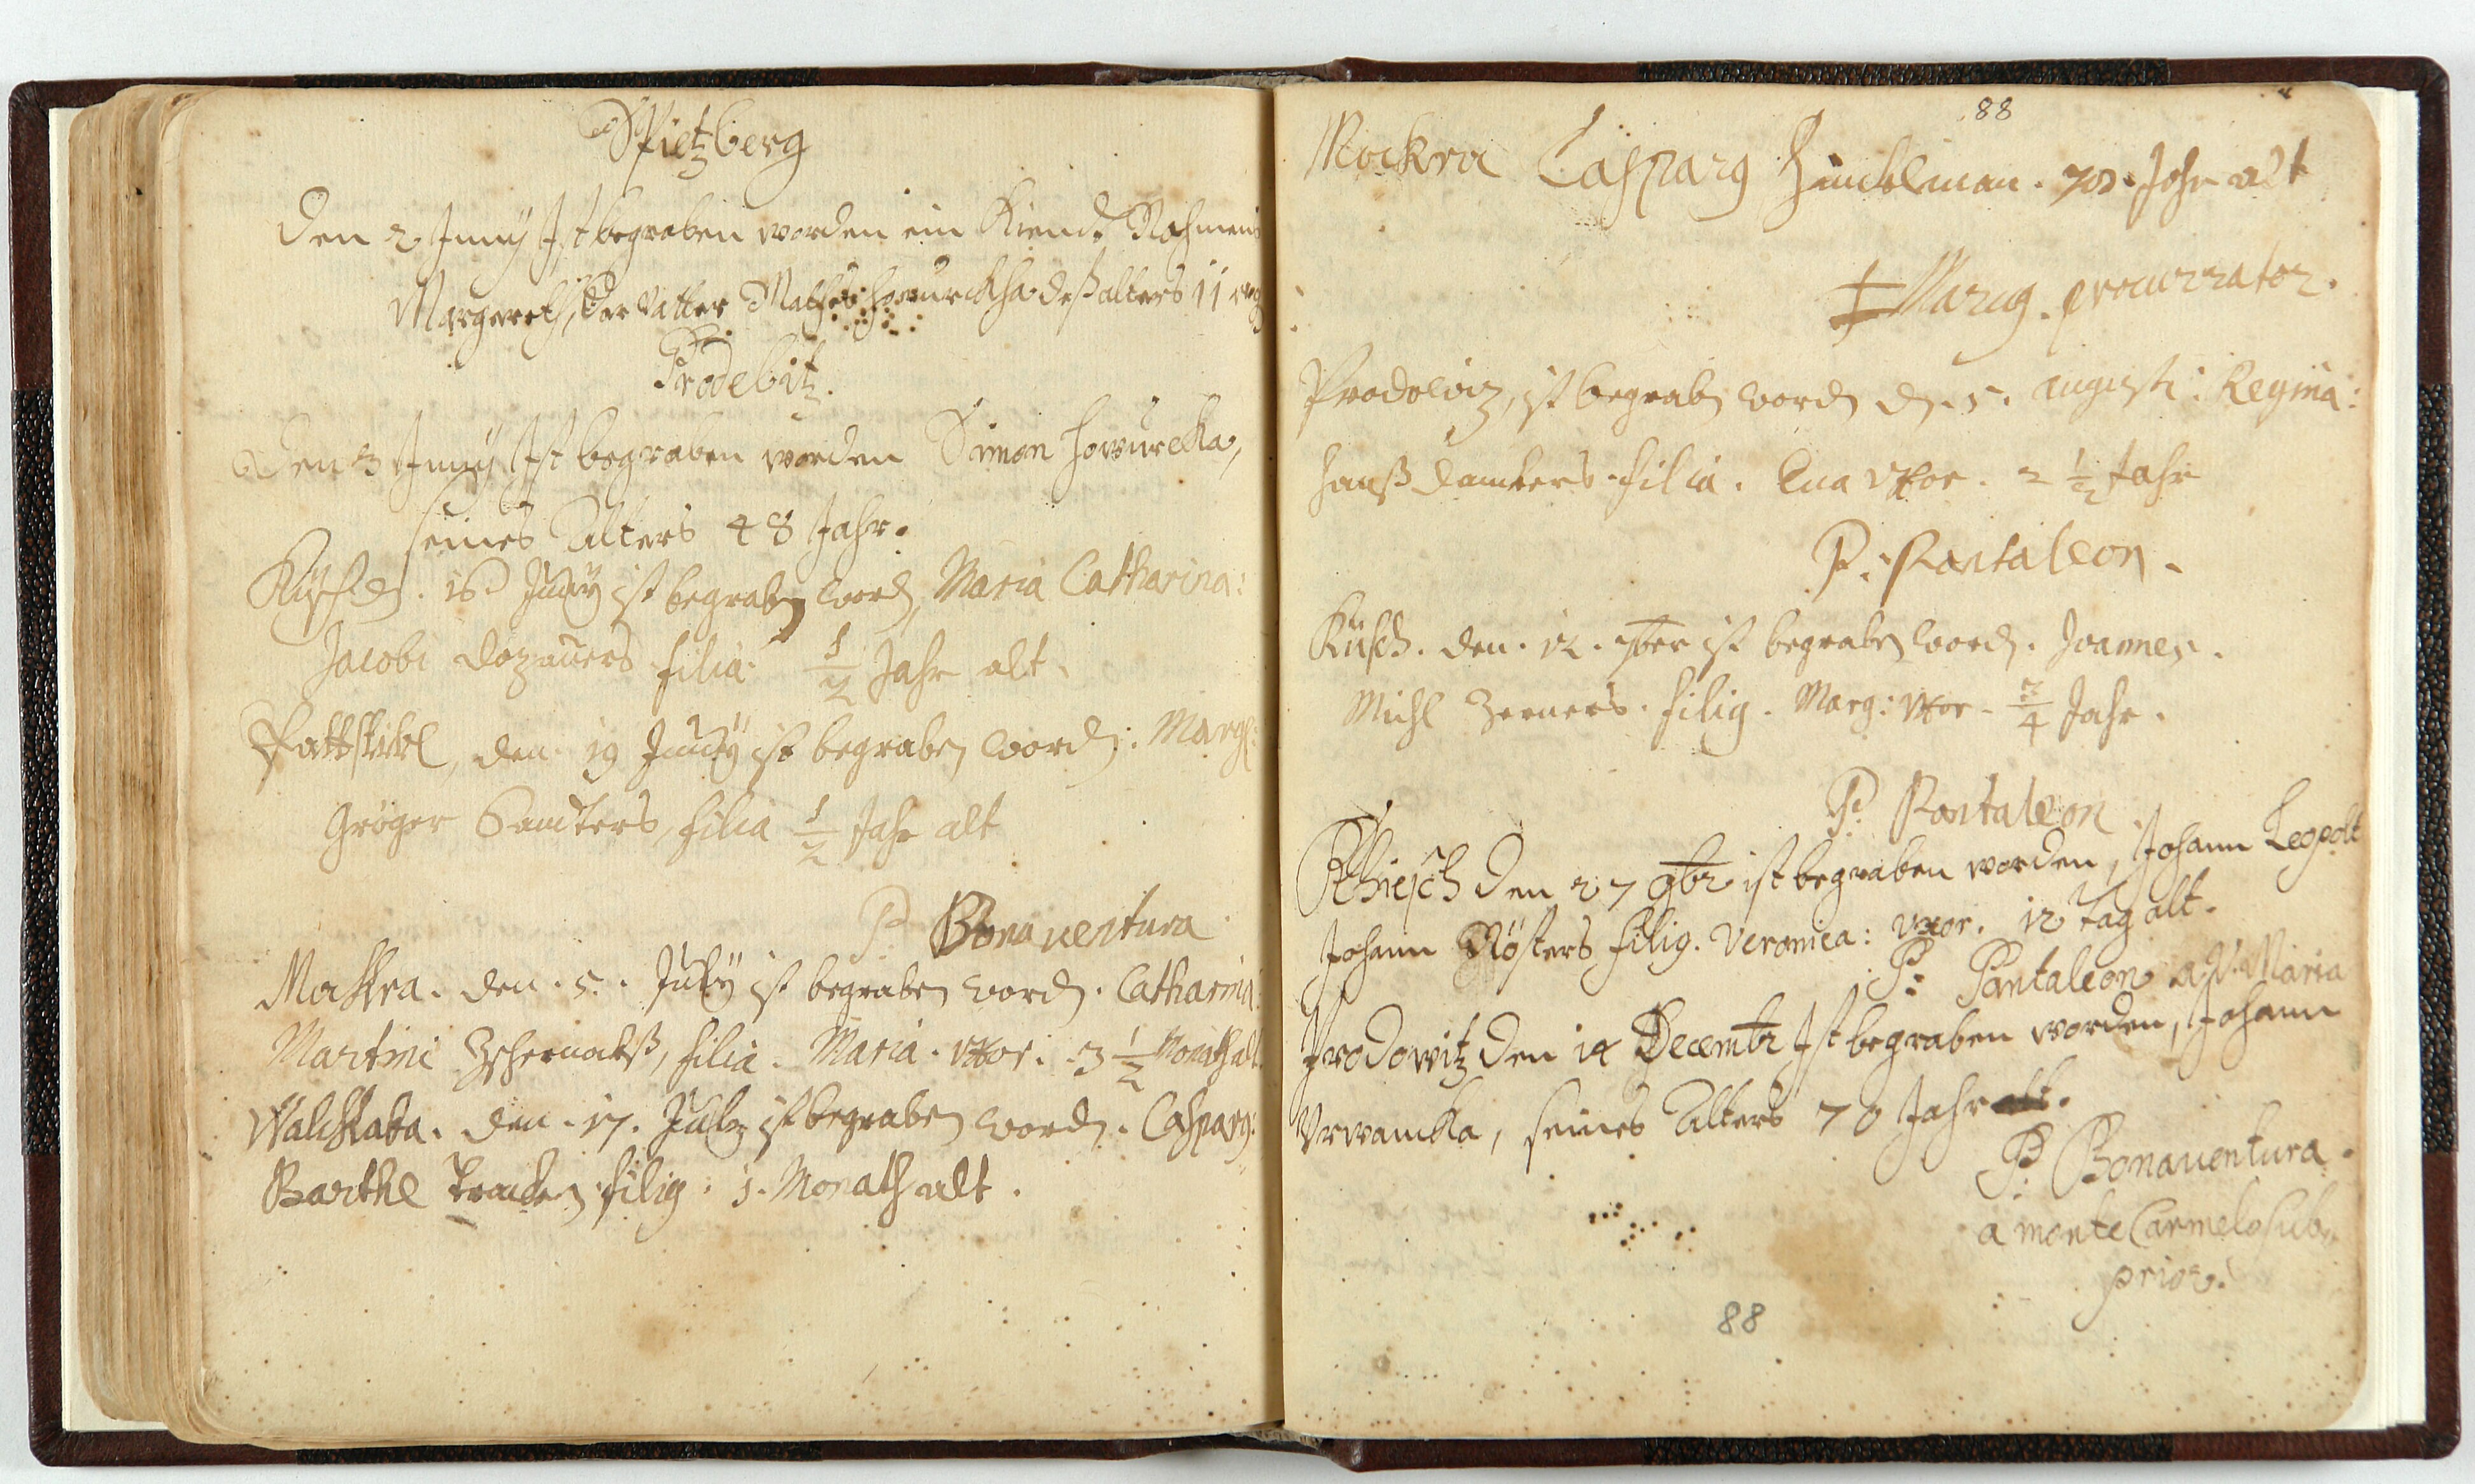 Spietzberg
Den 2 Juny Ist begraben worden ein Kiend Nahmens
Margareth, der Vatter Mathes howurckha deß alters 11 
Prodebitz.
Den 3 Juny Ist begraben worden Simon howurcka,
seines Alters 48 Jahr.
Küsch d. 16 Juny ist begraben word, Maria Catharina:
Jacobi dozauers filia. 1/2 Jahr alt.
den 19 Juny ist begraben word: Margl:
Gröger Sandters, filia 1/2 Jahr alt
P. Bonaventura
Mockra. den. 5. July ist begraben word. Catharina:
Martini Zschernackß, filia. Maria. vxor. 3 1/2 Monath alt.
Walchkaba. den. 17. July ist begraben word. Casparg:
Barthl filig. 1. Monath alt.
88
Mockra Casparg Hinckelman. 70. Jahr alt
P Marcg. procurrator.
Prodowiz, ist begraben word d. 5. augusti: Regina:
hanß dambers filia. Eua vxor. 2 1/2 Jahr
P. Pantaleon.
Küsch. den. 12. 7ber ist begraben word. Joannes.
Michl Zerners. filig. Marg: vxor. 3/4 Jahr.
P. Pantaleon
Khiesch den 27 9br ist begraben worden, Johann Leopolt
Johann Rösters filig. Veronica: vxor. 12 tag alt.
P: Pantaleon a V. Maria
Prodowitz den 14 Decembr Ist begraben worden, Johann
Vrwancka, seines Alters 70 Jahr alt.
P: Bonauentura.
a monte Carmelo sub-
prior.
88